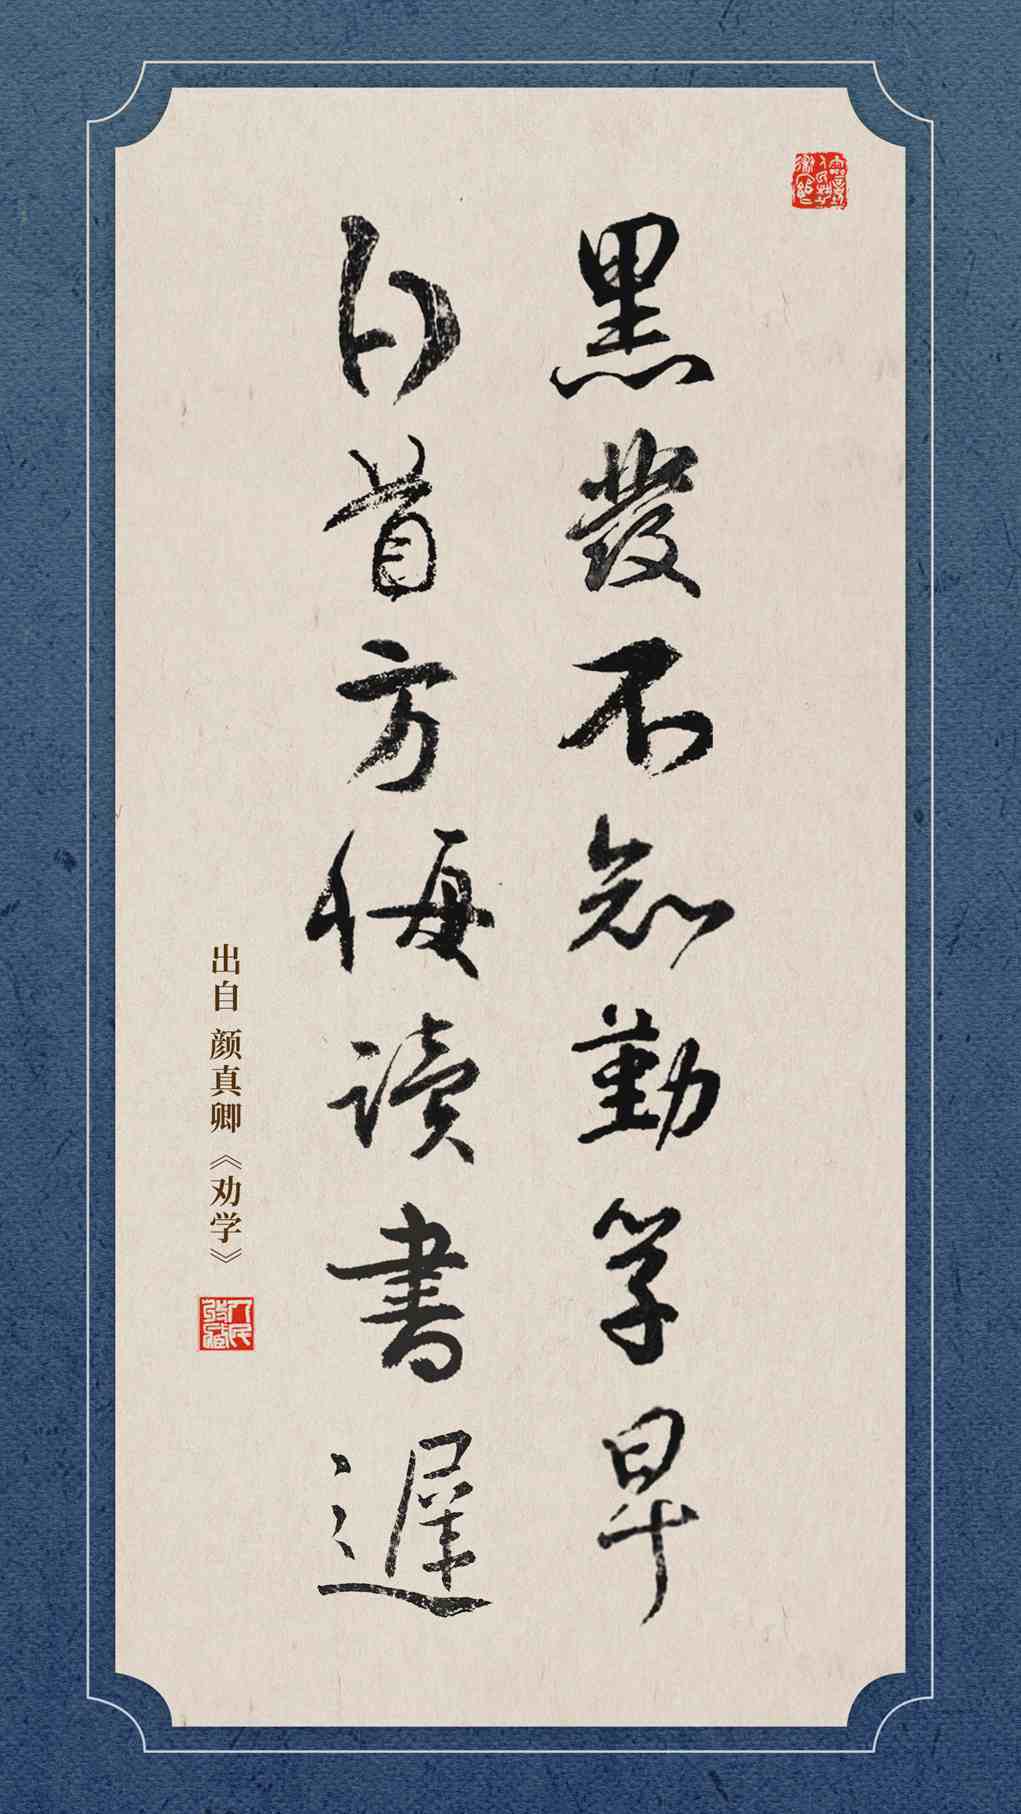 黑發不知勤學早
白首方悔讀書遲
出自 颜真卿《劝学》